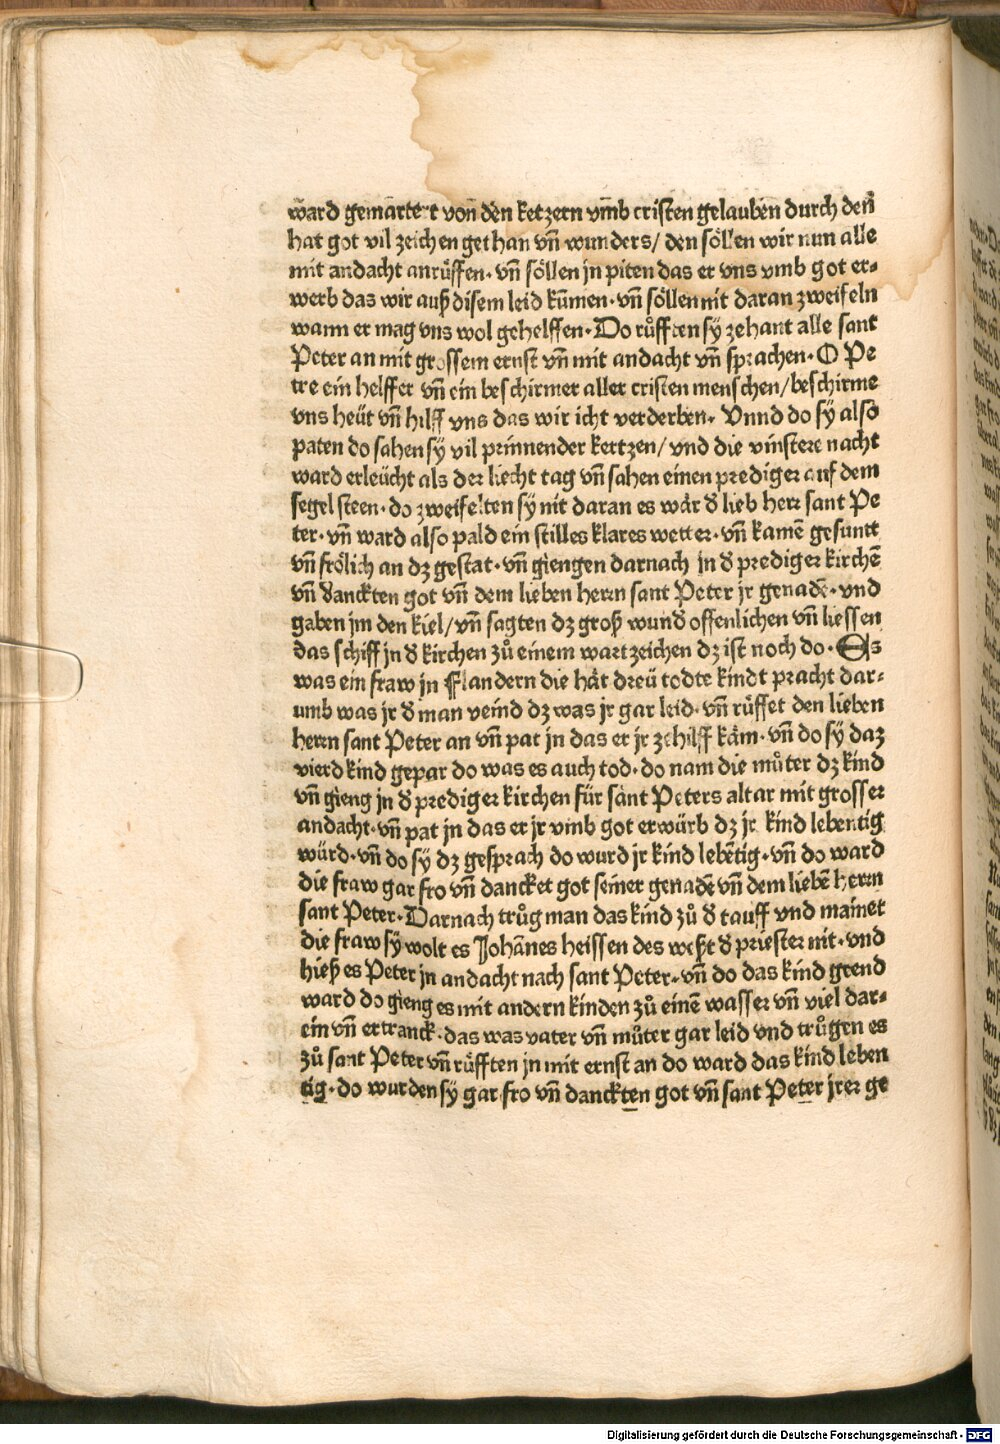 ward gemartert von den ketzern vmb cristen gelauben durch den
hat got vil zeichen gethan vñ wunders/ den söllen wir nun alle
mit andacht anrůffen· vñ söllen jn piten das er vns vmb got er⸗
werb das wir auß disem leid kũmen· vñ söllen nit daran zweifeln
wann er mag vns wol gehelffen· Do růfften sÿ zehant alle sant
Peter an mit grossem ernst vñ mit andacht vñ sprachen· O Pe
tre ein helffer vñ ein beschirmer aller cristen menschen/beschirme
vns heüt vñ hilff vns das wir icht verderben· Vnnd do sÿ also
paten do sahen sÿ vil prinnender kertzen/ vnd die vinstere nacht
ward erleücht als der liecht tag vñ sahen einen prediger auf dem
segel steen· do zweifelten sÿ nit daran es wär d̕ lieb herr sant Pe
ter· vñ ward also pald ein stilles klares wetter· vñ kamẽ gesuntt
vñ frölich an dz gestat· vñ giengen darnach jn d̕ prediger kirchẽ
vñ danckten got vñ dem lieben herrn sant Peter jr genadẽ· vnd
gaben jm den kiel/ vñ sagten dz groß wund̕ offenlichen vñ liessen
das schiff jn d̕ kirchen zů einem wartzeichen dz ist noch do· Es
was ein fraw jn Flandern die hät dreü todte kindt pracht dar⸗
umb was jr d̕ man veind dz was jr gar leid· vñ růffet den lieben
herrn sant Peter an vñ pat jn das er jr zehilff käm· vñ do sÿ daz
vierd kind gepar do was es auch tod· do nam die můter dz kind
vñ gieng jn d̕ prediger kirchen für sant Peters altar mit grosser
andacht· vñ pat jn das er jr vmb got erwürb dz jr kind lebentig
würd· vñ do sÿ dz gesprach do wurd jr kind lebẽtig· vñ do ward
die fraw gar fro vñ dancket got seiner genadẽ vñ dem liebẽ herrn
sant Peter· Darnach trůg man das kind zů d̕ tauff vnd mainet
die fraw sÿ wolt es Johãnes heissen des weßt d̕ priester nit· vnd
hieß es Peter jn andacht nach sant Peter· vñ do das kind geend
ward do gieng es mit andern kinden zů einẽ wasser vñ viel dar⸗
ein vñ ertranck· das was vater vñ můter gar leid vnd trůgen es
zů sant Peter vñ růfften jn mit ernst an do ward das kind leben
tig· do wurden sÿ gar fro vñ danckten got vñ sant Peter jrer ge
Digitalisierung gefördert durch die Deutsche Forschungsgemeinschaft - DFG